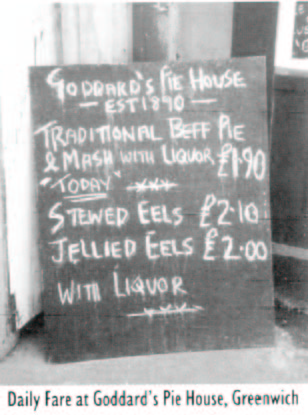 GODDARD'S PIE HOUSE
— EST 1890 —
TRADITIONAL BEFF PIE
& MASH WITH LIQUOR £1.90
"TODAY"
STEWED EELS £2.10
JELLIED EELS £2.00
WITH LIQUOR
Daily Fare at Goddard's Pie House, Greenwich